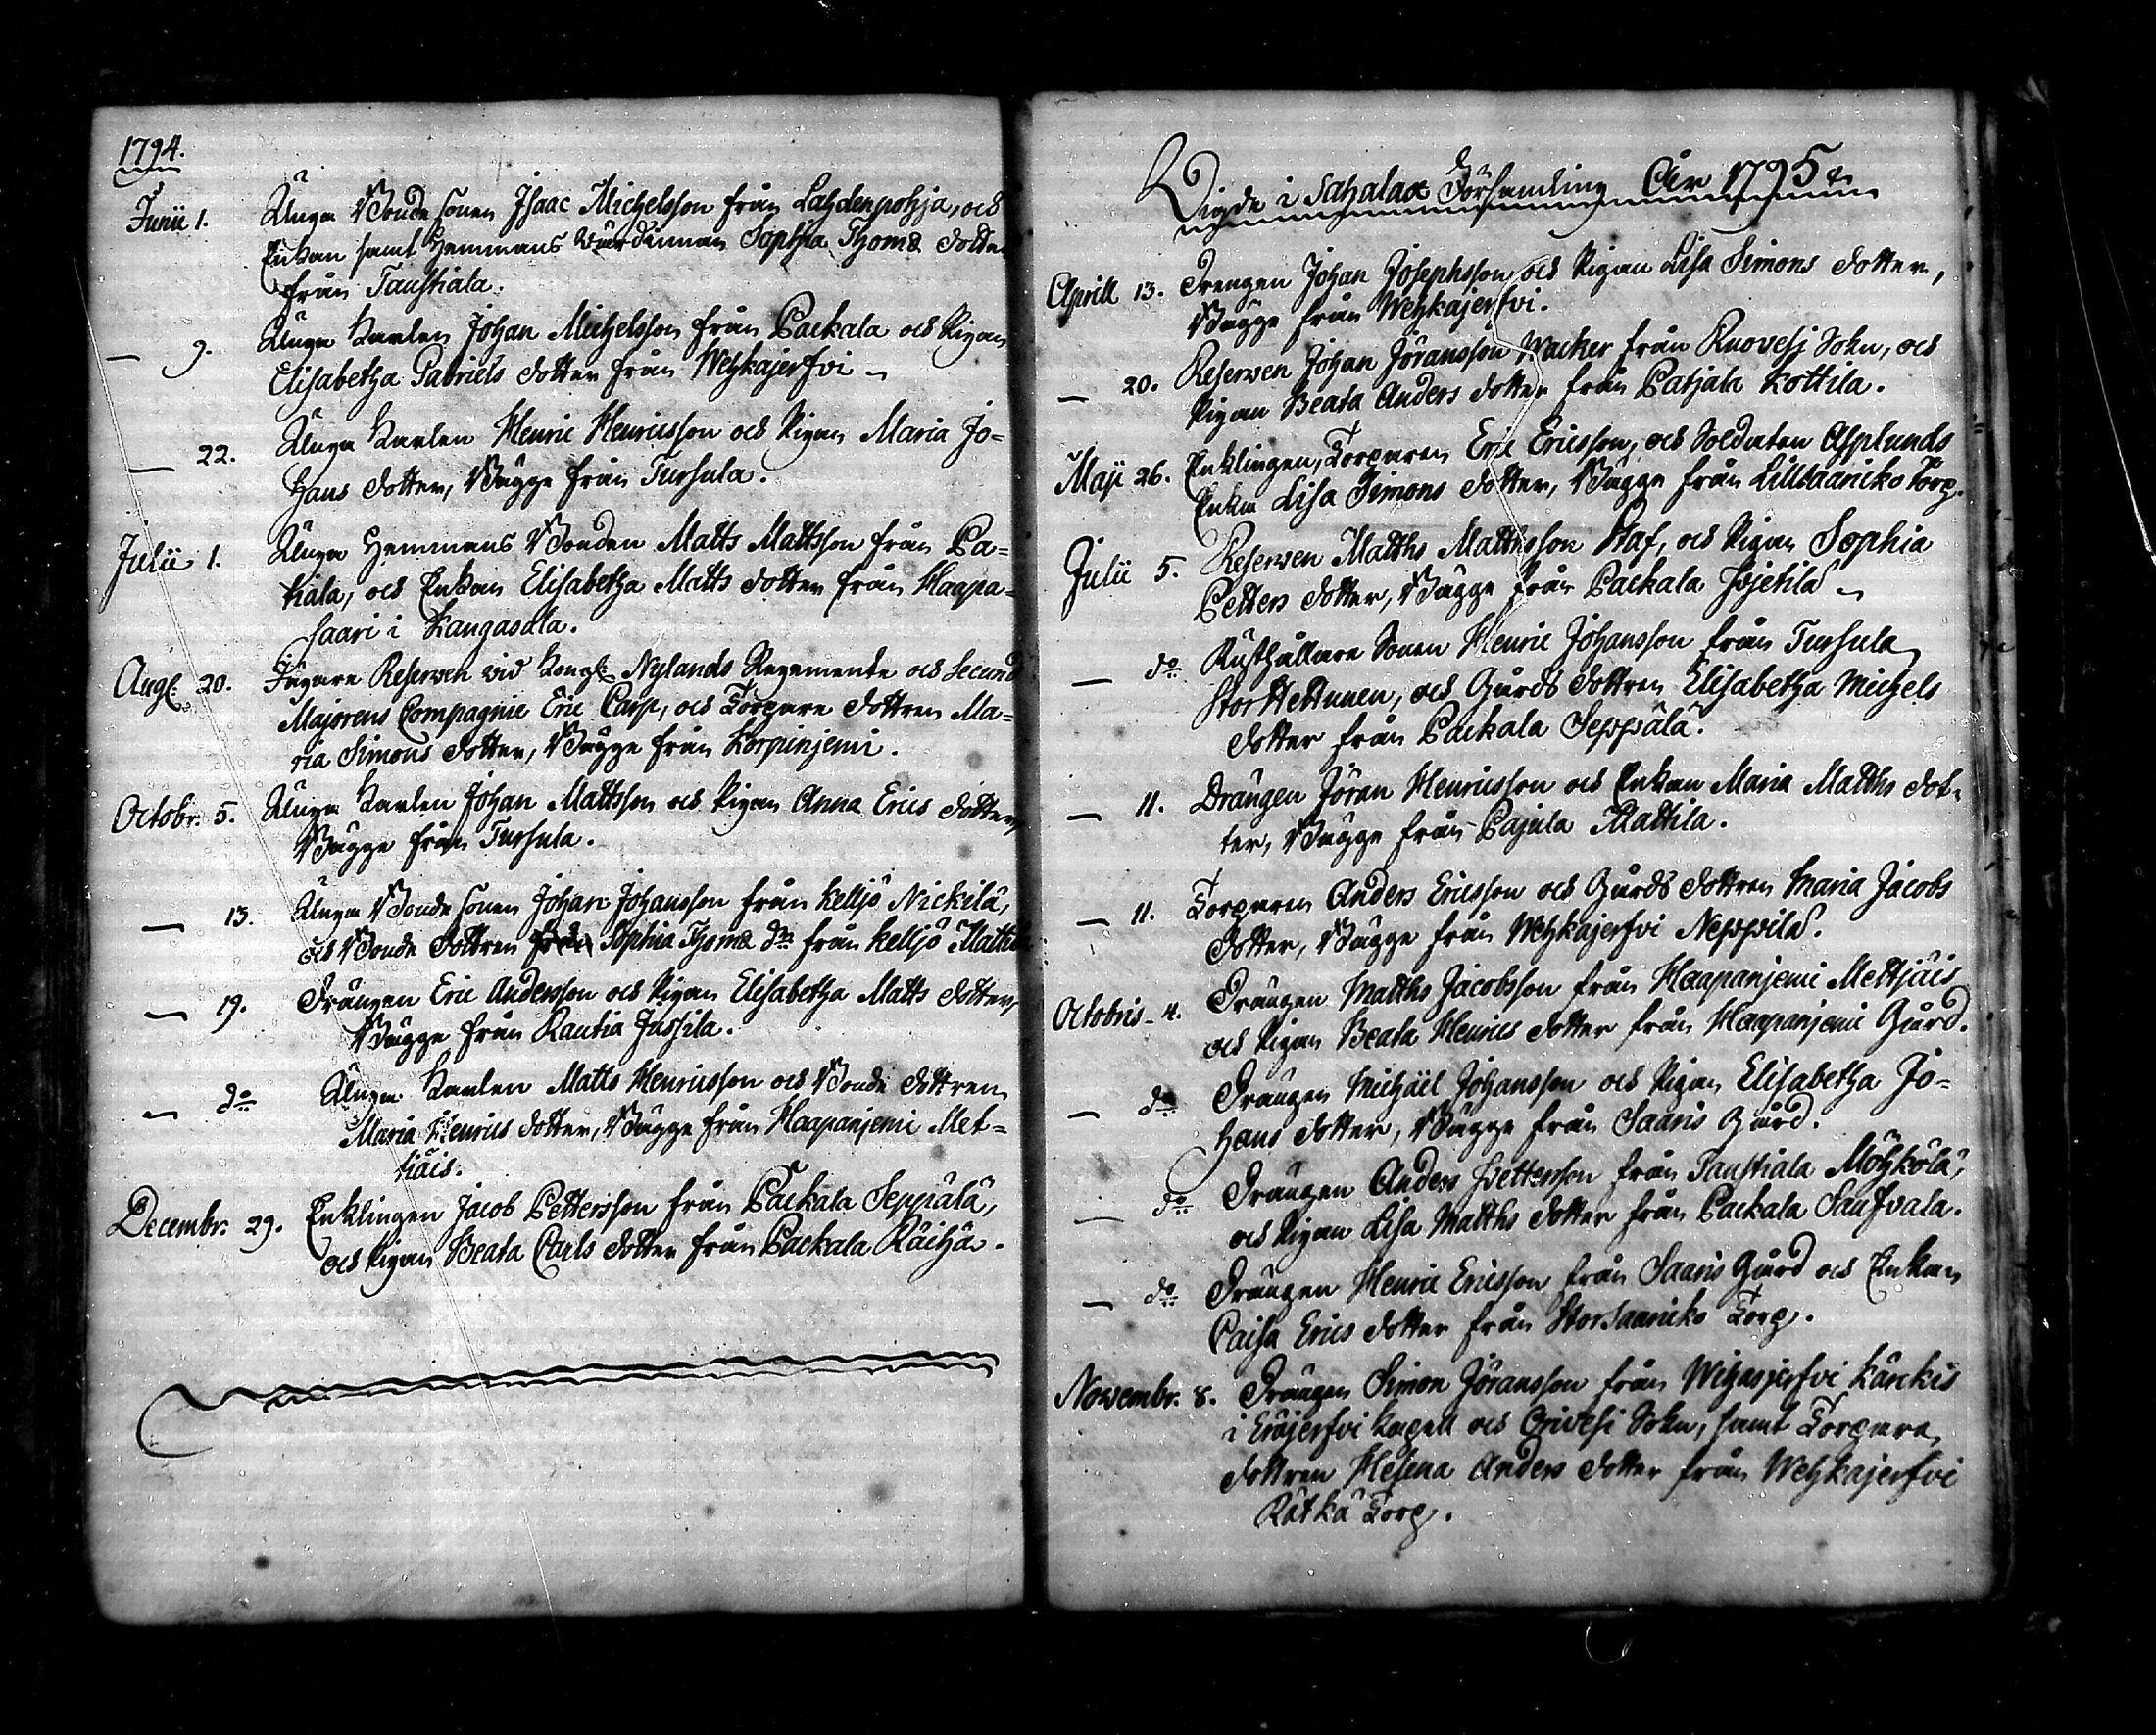 1794.
Junii 1. Unga Bonde sonen Isaac Michelsson från Lahdenpohja, och
Enkan samt Hemmans Värdinnan Sophia Thomæ dotter
från Taustiala.
— 9. Unga Karlen Johan Michelsson från Packala och Pigan
Elisabetha Gabriels dotter från Wehkajerfvi
— 22. Unga Karlen Henric Henricsson och Pigan Maria Jo=
hans dotter, Bägge från Tursula.
Julii 1. Unga Hemmans Bonden Matts Mattsson från Pa=
kiala, och Enkan Elisabetha Matts dotter från Haapa=
saari i Kangasala.
Aug. 20. Jägare Reserven vid Kongl. Nylands Regemente och Secund
Majorens Compagnie Eric Carp, och Torpare dottren Ma=
ria Simons dotter, Bägge från Korpinjemi.
Octobr. 5. Unga Karlen Johan Mattsson och Pigan Anna Erics dotter,
Bägge från Tursula.
— 13. Unga Bonde sonen Johan Johansson från Keljo Nickilä,
och Bonde dottren Sophia Thomæ d:r från Keljo Mattila
— 19. Drängen Eric Andersson och Pigan Elisabetha Matts dotter,
Bägge från Rautia Jussila.
— d:o Unga Karlen Matts Henricsson och Bonde dottren
Maria Henrics dotter, Bägge från Haapanjemi Met=
käis.
Decembr. 29. Enklingen Jacob Pettersson från Packala Seppälä,
och Pigan Beata Carls dotter från Packala Räihä.
Vigde i Sahalax Församling År 1795
Aprill 13. Drengen Johan Josephsson och Pigan Lisa Simons dotter,
Bägge från Wehkajerfvi.
— 20. Reserven Johan Jöransson Wacker från Ruovesi Sokn, och
Pigan Beata Anders dotter från Pakjala Kottila.
Maji 26. Enklingen, Torparen Eric Ericsson, och Soldaten Asplunds
Enka Lisa Simons dotter, Bägge från Lillsaaniko Torp.
Julii 5. Reserven Matths Matthsson Staf, och Pigan Sophia
Petters dotter, Bägge från Packala
— d:o Rusthållare Sonen Henric Johansson från Tursula
Stor Hettunen, och Gårds dottren Elisabetha Michels
dotter från Packala Seppälä.
— 11. Drängen Jöran Henricsson och Enkan Maria Matths dot=
ter, Bägge från Pajula Mattila.
— 11. Torparen Anders Ericsson och Gårds dottren Maria Jacobs
dotter, Bägge från Wehkajerfvi Neppilä.
Octobris 4. Drängen Matths Jacobsson från Haapanjemi Mettjäis
och Pigan Beata Henrics dotter från Haapanjemi Gård.
— d:o Drängen Michäel Johansson och Pigan Elisabetha Jo=
hans dotter, Bägge från Saaris Gård.
— d:o Drängen Anders Pettersson från Taustiala Möhkölä,
och Pigan Lisa Matths dotter från Packala Saufvala.
— d:o Drängen Henric Ericsson från Saaris Gård och Enkan
Caisa Erics dotter från Storsaaniko Torp.
Novembr. 8. Drängen Simon Jöransson från Wihasjerfvi Kärckis
i Eräjerfvi Kapell och Orivesi Sokn, samt Torpare
dottren Helena Anders dotter från Wehkajerfvi
Rätkä Torp.